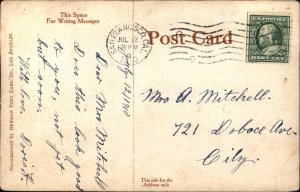 This Space
For Writing Messages
Post Card
SAN FRANCISCO, CAL.
JUL 12
PM
ONE CENT
July 12/1910
Dear Mrs Mitchell
Does this look good
to you, not yet
but soon.
With love.
Mrs A. Mitchell.
721 Duboce Ave
City.
This side for the
Address only
Manufactured by Newman Post Card Co., Los Angeles